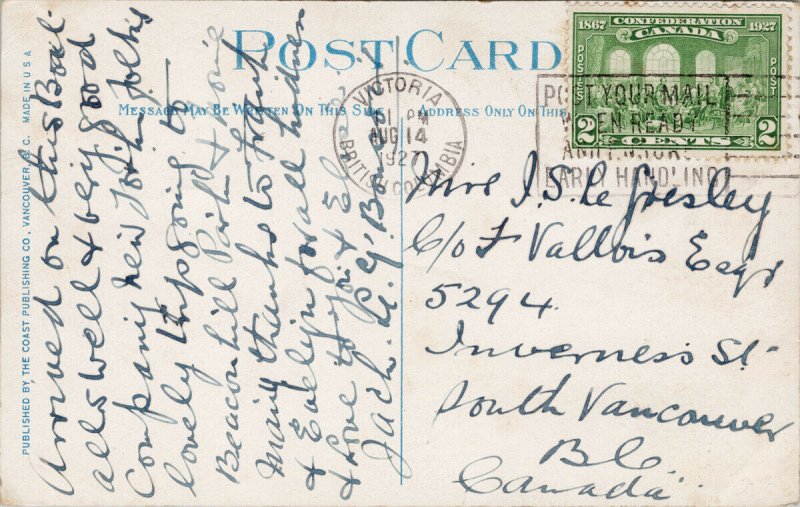 POST CARD
MESSAGE MAY BE WRITTEN ON THIS SIDE
ADDRESS ONLY ON THIS
PUBLISHED BY THE COAST PUBLISHING CO., VANCOUVER, B.C. MADE IN U S A
1867 CONFEDERATION 1927
CANADA
POSTES
POSTAGE
2 CENTS 2
VICTORIA
PM
AUG 14
1927
BRITISH COLUMBIA
POST YOUR MAIL
WHEN READY
EARLY HANDLING
Arrived on this Boat
all well & very good
Company new York folks
lovely trip going to
Beacon hill Park & home
Many thanks to Frank
& Evelyn for all kidness
& Love to you &
Jack.
Miss J. S. Le Gresley
C/o F Vallois Esqr
5294
Inverness St
South Vancouver
B C
Canada